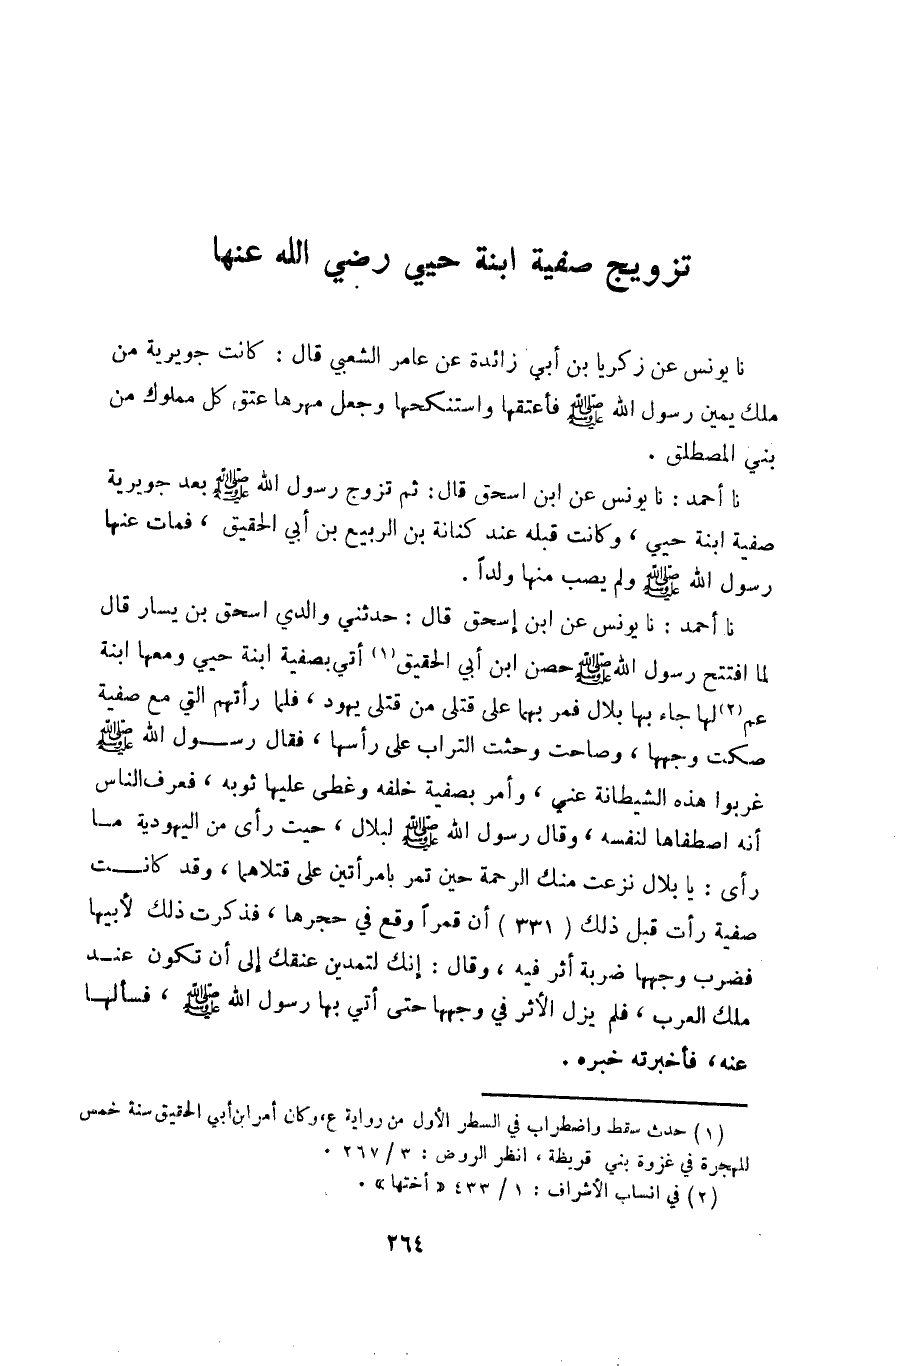 تزويج صفية ابنة حيي رضي الله عنها
نا يونس عن زكريا بن أبي زائدة عن عامر الشعبي قال : كانت جويرية من
ملك يمين رسول الله ﷺ فأعتقها واستنكحها وجعل مهرها عتق كل مملوك من
بني المصطلق .
نا أحمد : نا يونس عن ابن اسحق قال: ثم تزوج رسول الله ﷺ بعد جويرية
صفية ابنة حيي ، وكانت قبله عند كنانة بن الربيع بن أبي الحقيق ، فمات عنها
رسول الله ﷺ ولم يصب منها ولداً .
نا أحمد : نا يونس عن ابن إسحق قال : حدثني والدي اسحق بن يسار قال
لما افتتح رسول الله ﷺ حصن ابن أبي الحقيق(١) أتي بصفية ابنة حيي ومعها ابنة
عم(٢) لها جاء بها بلال فمر بهما على قتلى من قتلى يهود ، فلما رأتهم التي مع صفية
صكت وجهها ، وصاحت وحثت التراب على رأسها ، فقال رســـول الله ﷺ
غربوا هذه الشيطانة عني ، وأمر بصفية خلفه وغطى عليها ثوبه ، فعرف الناس
أنه اصطفاها لنفسه ، وقال رسول الله ﷺ لبلال ، حيث رأى من اليهودية مــا
رأى : يا بلال نزعت منك الرحمة حين تمر بامرأتين على قتلاهما ، وقد كانـــت
صفية رأت قبل ذلك ( ٣٣١ ) أن قمراً وقع في حجرها ، فذكرت ذلك لأبيها
فضرب وجهها ضربة أثر فيه ، وقال : إنك لتمدين عنقك إلى أن تكون عنــد
ملك العرب ، فلم يزل الأثر في وجهها حتى أتي بها رسول الله ﷺ ، فسألهــا
عنه، فأخبرته خبره .
(١) حدث سقط واضطراب في السطر الأول من رواية ع، وكان أمر ابن أبي الحقيق سنة خمس
للهجرة في غزوة بني قريظة ، انظر الروض : ٣ / ٢٦٧ .
(٢) في انساب الأشراف : ١ / ٤٣٣ « أختها » .
٢٦٤